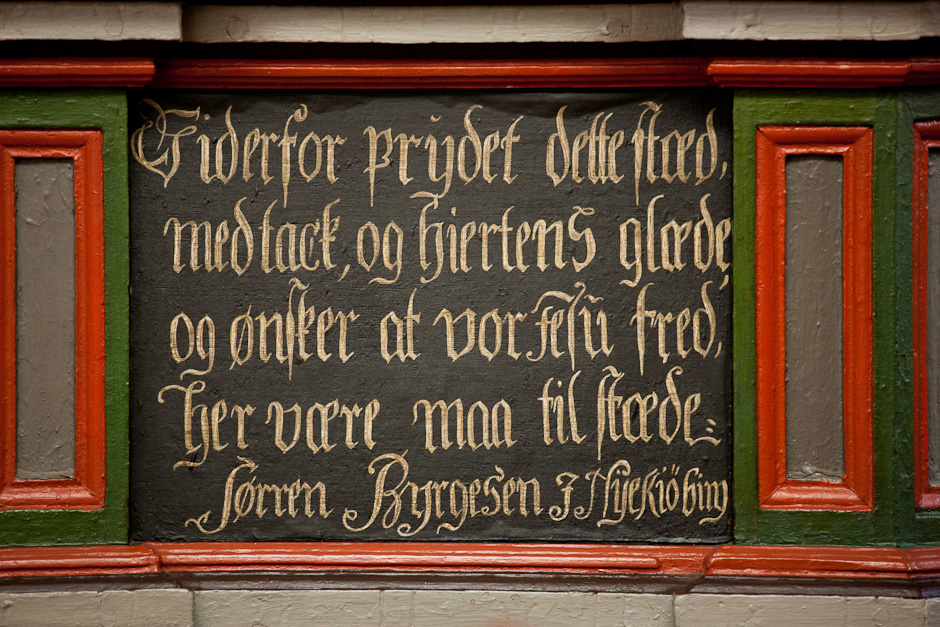 Giderfor prÿdet dette stæd,
med tack, og hiertens glæde,
og ønsker at vor Jesu fred,
her være maa til stæde:
Sørren Byrgesen I Nÿekiöbing